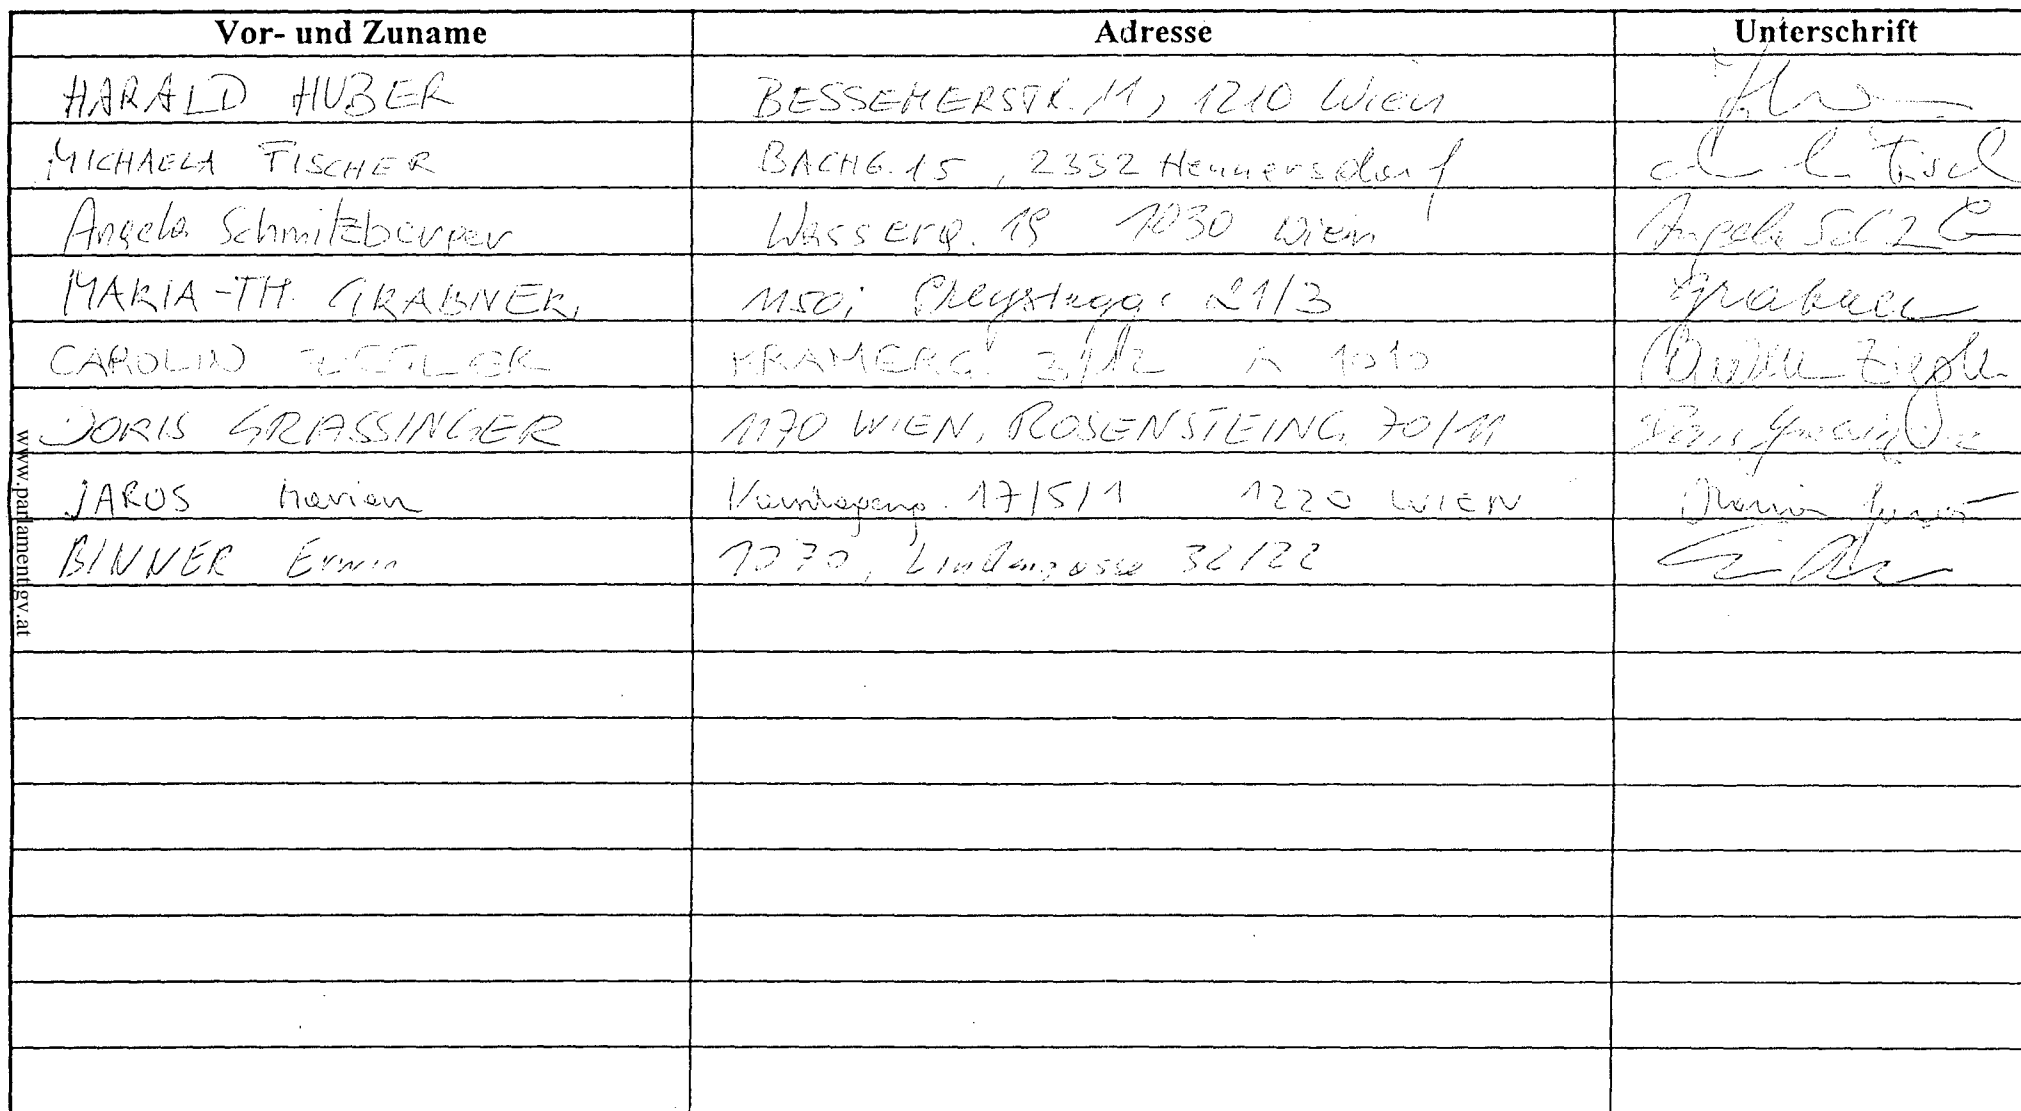 Vor- und Zuname Adresse Unterschrift
HARALD HUBER BESSEMERSTR. 11, 1210 Wien
MICHAELA FISCHER BACHG. 15, 2332 Hennersdorf
Angela Schmitzberger Wasserg. 19 1030 Wien Angela
MARIA-TH. GRABNER, 1150, 21/3 Grabner
CAROLIN ZIEGLER KRAMERG. 3/12 A 1010 Ziegler
DORIS GRASSINGER 1170 WIEN, ROSENSTEING. 70/11
JAROS Marian 17/5/1 1220 WIEN
BINNER Erwin 1070, Lindengasse 32/22
www.parlament.gv.at